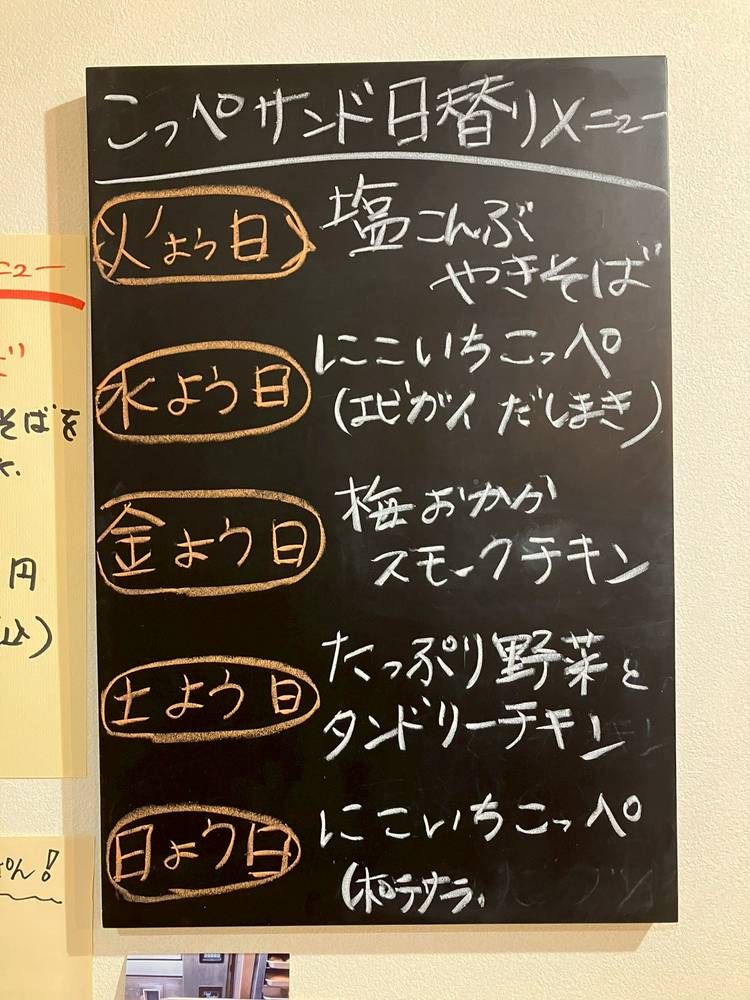 こっペサンド日替りメニュー
火よう日
塩こんぶ
やきそば
水よう日
にこいちこっペ
(エビカツ だしまき)
金よう日
梅おかか
スモークチキン
土よう日
たっぷり野菜と
タンドリーチキン
日よう日
にこいちこっペ
(ポテサラ、
ニュー
そばを
円
込)